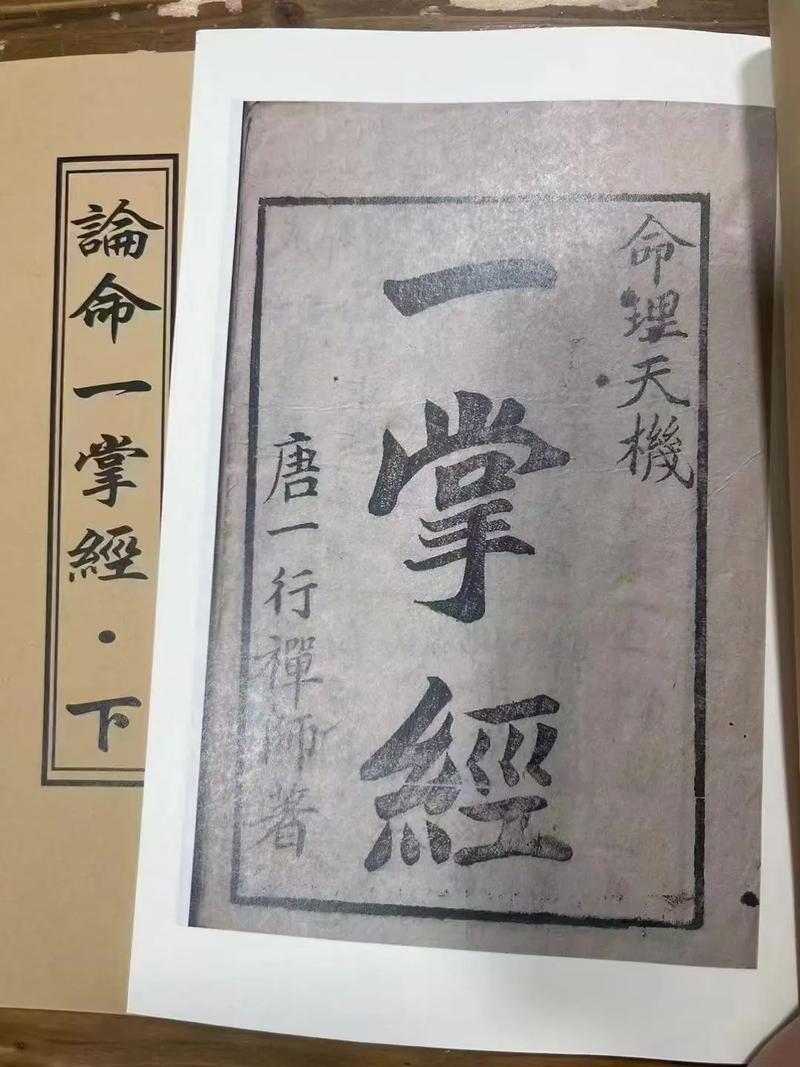 命理天機
一掌經
唐一行禪師著
論命一掌經·下